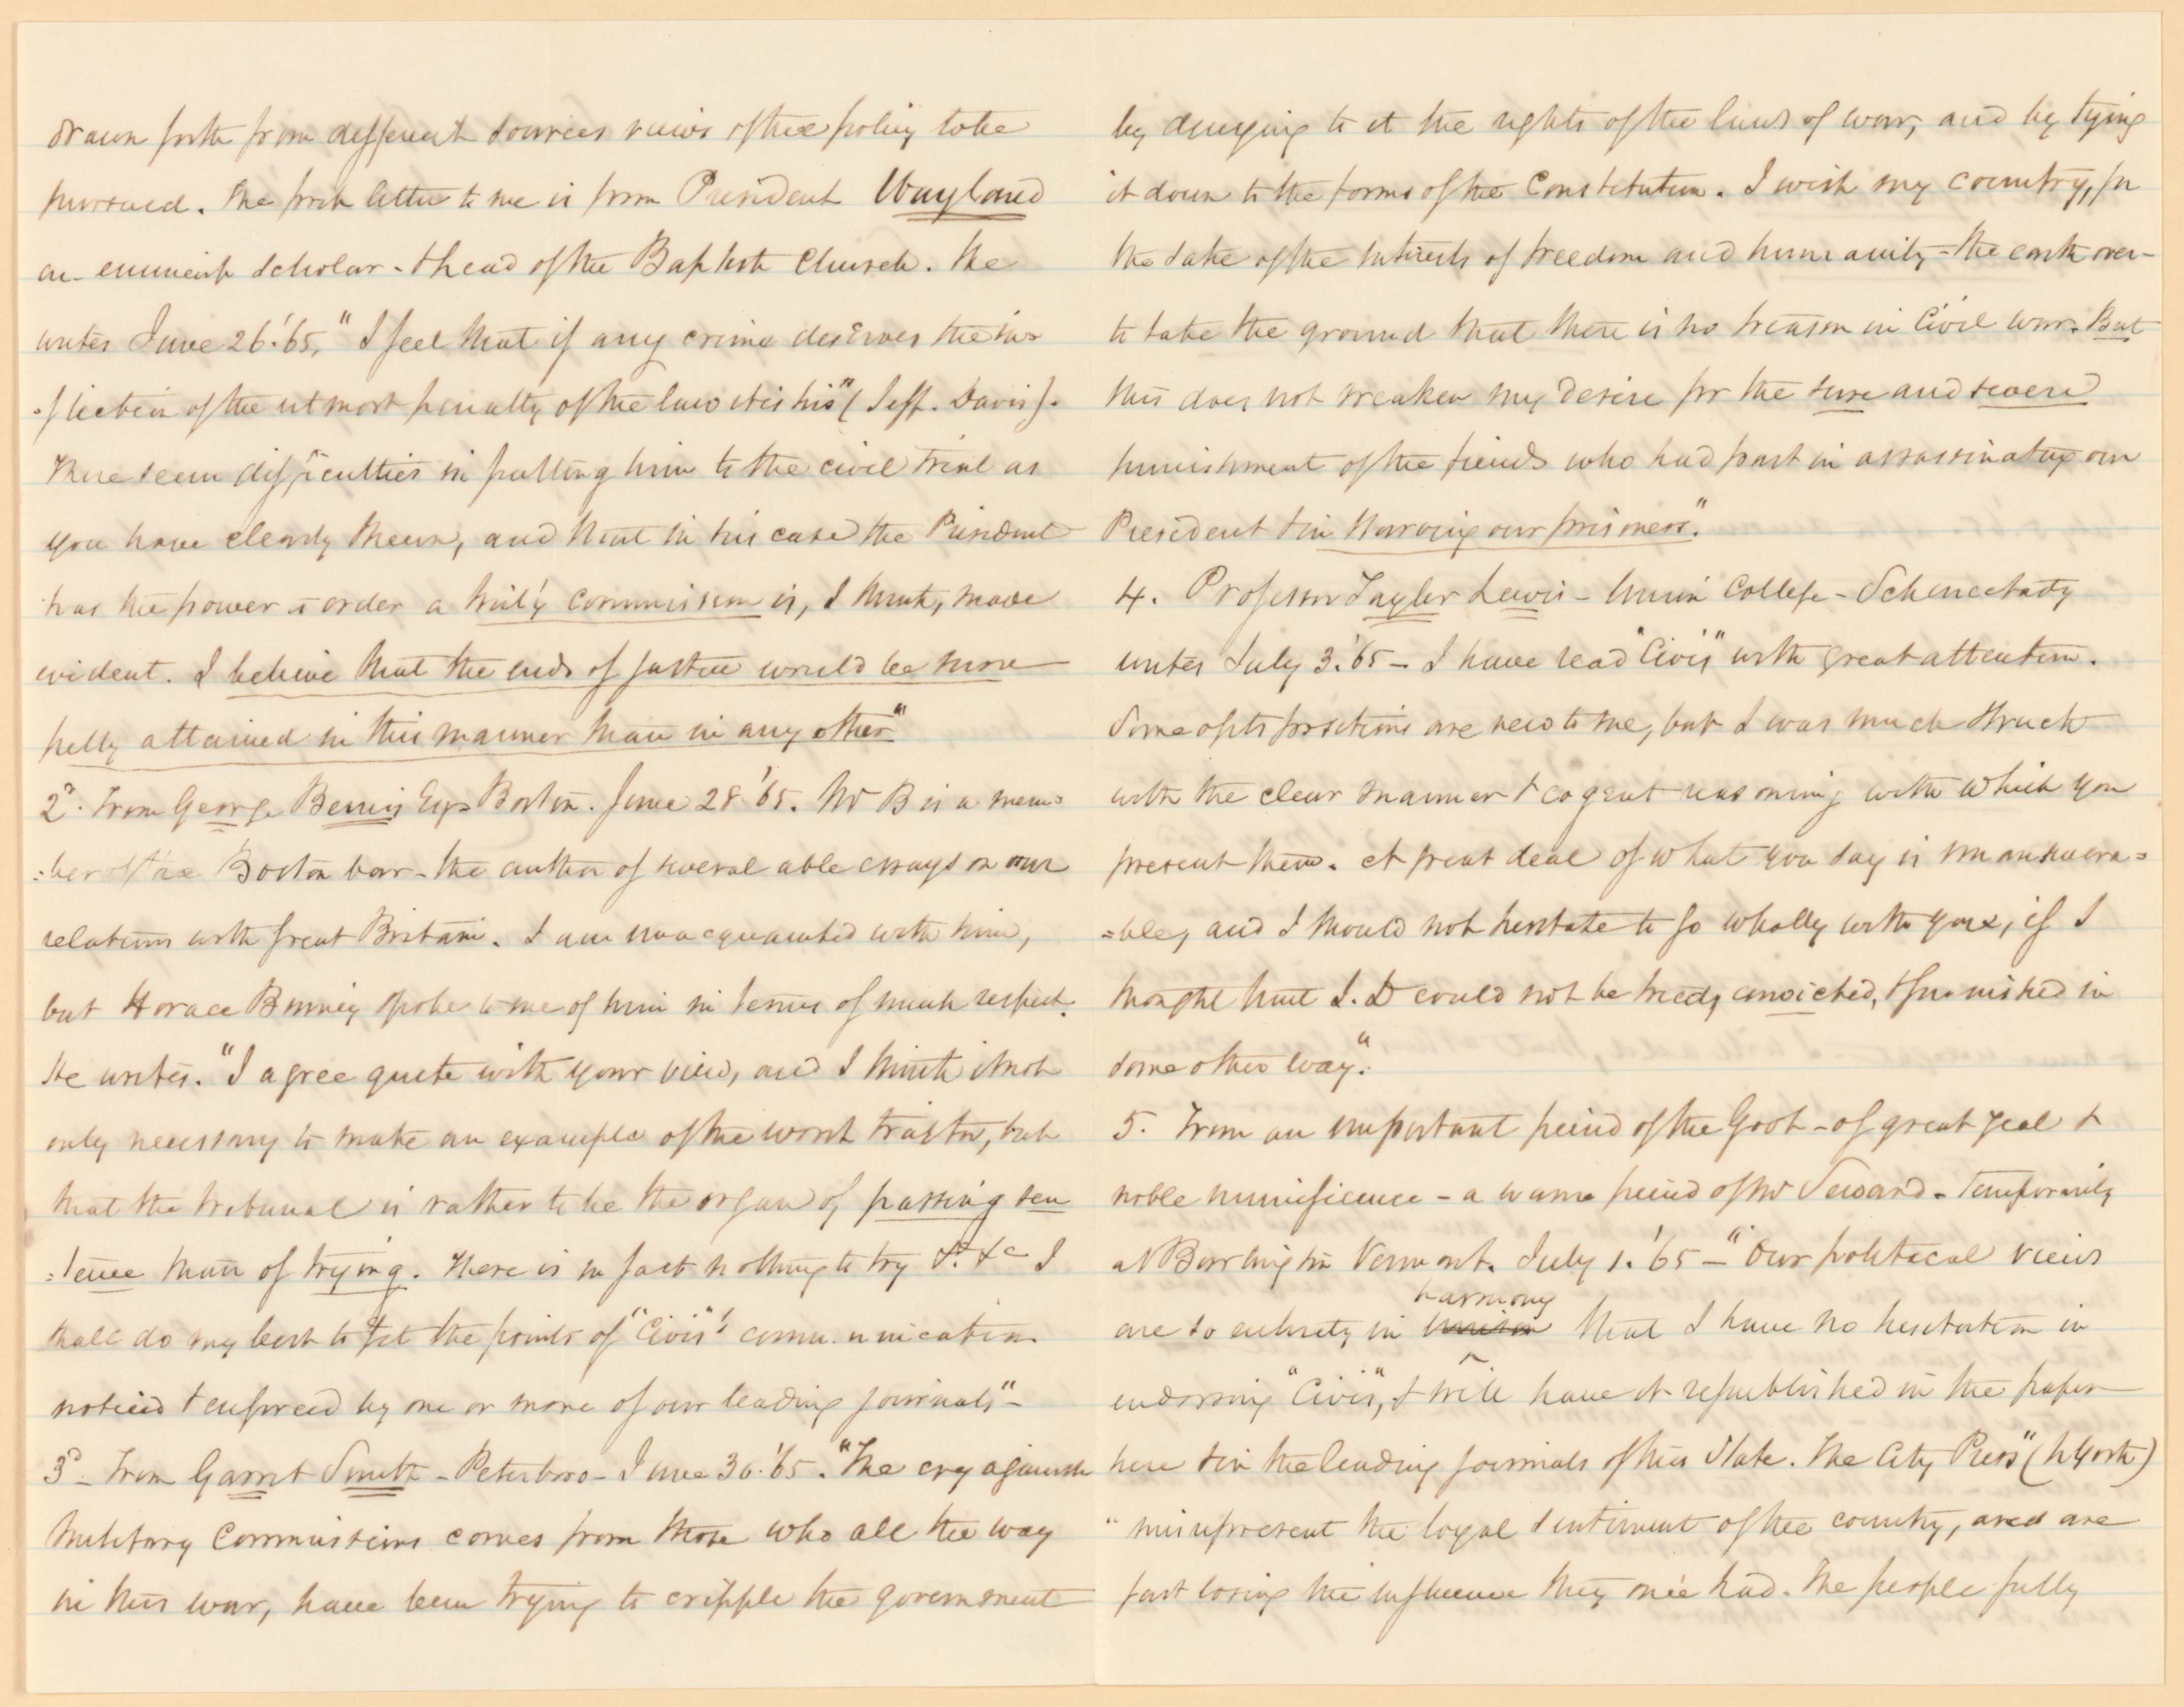 drawn forth from different sources views of the policy to be
pursued. The first letter to me is from President Wayland
an eminent scholar - & head of the Baptist Church. He
writes June 26. '65, "I feel that if any crime deserves the in=
=fliction of the utmost penalty of the law it is his" (Jeff. Davis).
There seem difficulties in putting him to the civil trial as
you have clearly shewn, and that in his case the President
has the power to order a mil'y commission is, I think, made
evident. I believe that the ends of justice would be more
fully attained in this manner than in any other"
2d. From George Bemis Esq Boston. June 28 '65. Mr B is a mem=
=ber of the Boston bar - the author of several able essays on our
relations with Great Britain. I am unacquainted with him,
but Horace Binney spoke to me of him in terms of much respect.
He writes. "I agree quite with your view, and I think it not
only necessary to make an example of the worst traitor, but
that the tribunal is rather to be the organ of passing sen
=tence than of trying. There is in fact nothing to try &c. &c I
shall do my best to get the points of "Civis"'s communication
noticed & enforced by one or more of our leading journals" -
3d - From Gerrit Smith - Peterboro - June 30. '65. "The cry against
Military Commissions comes from those who all the way
in this war, have been trying to cripple the government
by denying to it the rights of the laws of war, and by tying
it down to the forms of the Constitution. I wish my country, for
the sake of the interests of freedom and humanity - the earth over -
to take the ground that there is no treason in Civil war. But
this does not weaken my desire for the sure and severe
punishment of the fiends who had part in assassinating our
President & in starving our prisoners".
4. Professor Tayler Lewis - Union College - Schenectady
writes July 3. '65 - I have read "Civis" with great attention.
Some of its positions are new to me, but I was much struck
with the clear manner & cogent reasoning with which you
present them. A great deal of what you say is unanswera=
=ble, and I should not hesitate to go wholly with you, if I
thought that J. D could not be tried, convicted, & punished in
some other way".
5. From an important friend of the Govt - of great zeal &
noble munificence - a warm friend of Mr Seward - temporarily
at Burlington Vermont. July 1. '65 - "Our political views
are so entirely in unison harmony that I have no hesitation in
endorsing "Civis", & will have it republished in the paper
here & in the leading journals of this State. The City Press" (N York)
"misrepresent the loyal sentiment of the country, and are
fast losing the influence they once had. The people fully